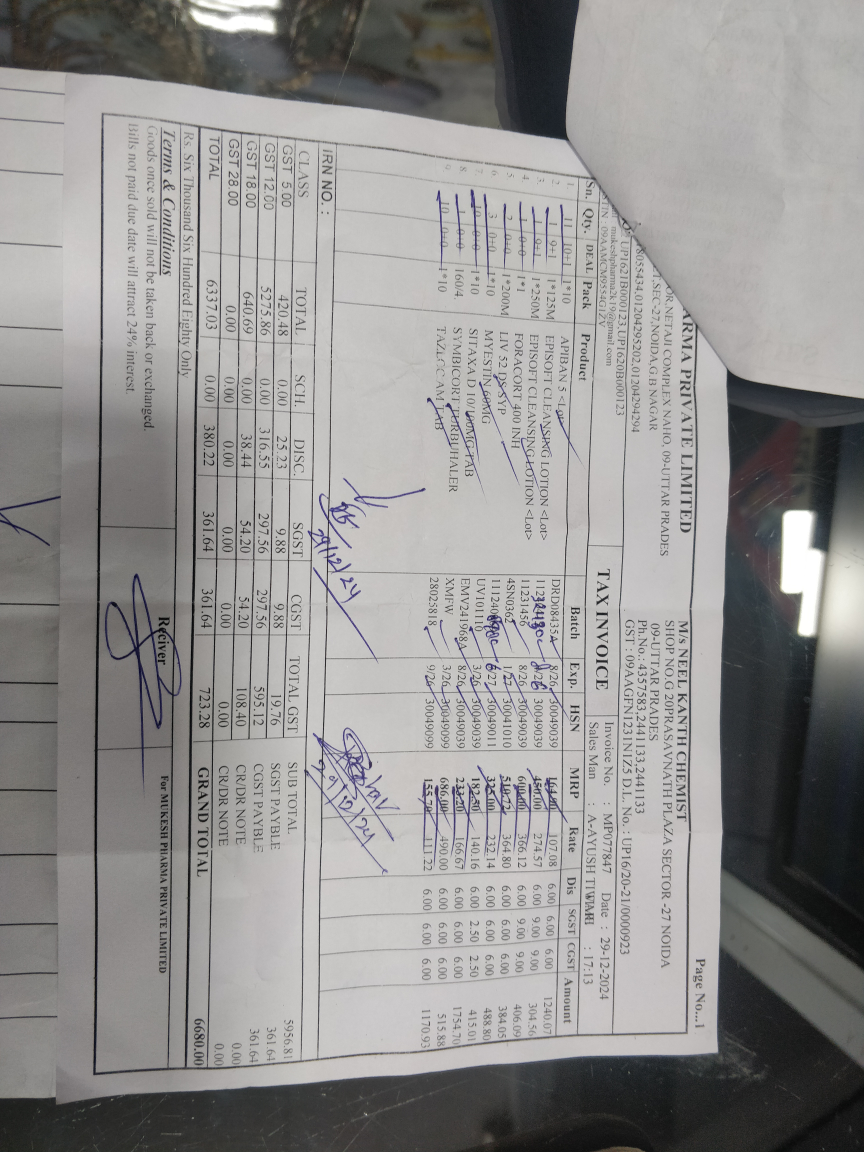 ARMA PRIVATE LIMITED
OR,NETAJI COMPLEX NAHO, 09-UTTAR PRADES
SEC-27,NOIDA,G.B NAGAR
8055434,01204295202,01204294294
UP1621B000123,UP1620B000123
mukeshpharma2k19@gmail.com
TIN : 09AAMCM9554Q1ZV
Page No...1
M/s NEEL KANTH CHEMIST
SHOP NO.G 20PRASAVNATH PLAZA SECTOR -27 NOIDA
09-UTTAR PRADES
Ph.No.: 4357583,2441133,2441133
GST : 09AAGFN1231N1Z5 D.L. No.: UP16/20-21/0000923
TAX INVOICE
Invoice No. : MP077847 Date : 29-12-2024
Sales Man : A-AYUSH TIWARI : 17:13
Sn. Qty. DEAL Pack Product Batch Exp. HSN MRP Rate Dis SGST CGST Amount
1. 11 10+1 1*10 APIBAN 5 <Lot> DRD08435A 8/26 30049039 164.90 107.08 6.00 6.00 6.00 1240.07
2. 1 9+1 1*125M EPISOFT CLEANSING LOTION <Lot> 30049039 450.00 274.57 6.00 9.00 9.00 304.56
3. 1 9+1 1*250M EPISOFT CLEANSING LOTION <Lot> 11231456 8/26 30049039 600.00 366.12 6.00 9.00 9.00 406.09
4. 1 0+0 1*1 FORACORT 400 INH 4SN0362 1/27 30041010 510.72 364.80 6.00 6.00 6.00 384.05
5. 2 0+0 1*200M LIV 52 DS SYP 6/27 30049011 325.00 232.14 6.00 6.00 6.00 488.80
6. 3 0+0 1*10 MYESTIN 60MG UV101110 3/26 30049039 182.50 140.16 6.00 2.50 2.50 415.01
7. 10 0+0 1*10 SITAXA D 10/100MG TAB EMV241968A 8/26 30049039 233.20 166.67 6.00 6.00 6.00 1754.70
8. 1 0+0 160/4. SYMBICORT TURBUHALER XMFW 3/26 30049099 686.00 490.00 6.00 6.00 6.00 515.88
9. 10 0+0 1*10 TAZLOC AM TAB 28025818 9/26 30049099 155.70 111.22 6.00 6.00 6.00 1170.93
29/12/24
29/12/24
IRN NO. :
CLASS TOTAL SCH. DISC. SGST CGST TOTAL GST
GST 5.00 420.48 0.00 25.23 9.88 9.88 19.76
GST 12.00 5275.86 0.00 316.55 297.56 297.56 595.12
GST 18.00 640.69 0.00 38.44 54.20 54.20 108.40
GST 28.00 0.00 0.00 0.00 0.00 0.00 0.00
TOTAL 6337.03 0.00 380.22 361.64 361.64 723.28
SUB TOTAL 5956.81
SGST PAYBLE 361.64
CGST PAYBLE 361.64
CR/DR NOTE 0.00
CR/DR NOTE 0.00
GRAND TOTAL 6680.00
Rs. Six Thousand Six Hundred Eighty Only
Terms & Conditions
Goods once sold will not be taken back or exchanged.
Bills not paid due date will attract 24% interest.
Reciver
For MUKESH PHARMA PRIVATE LIMITED